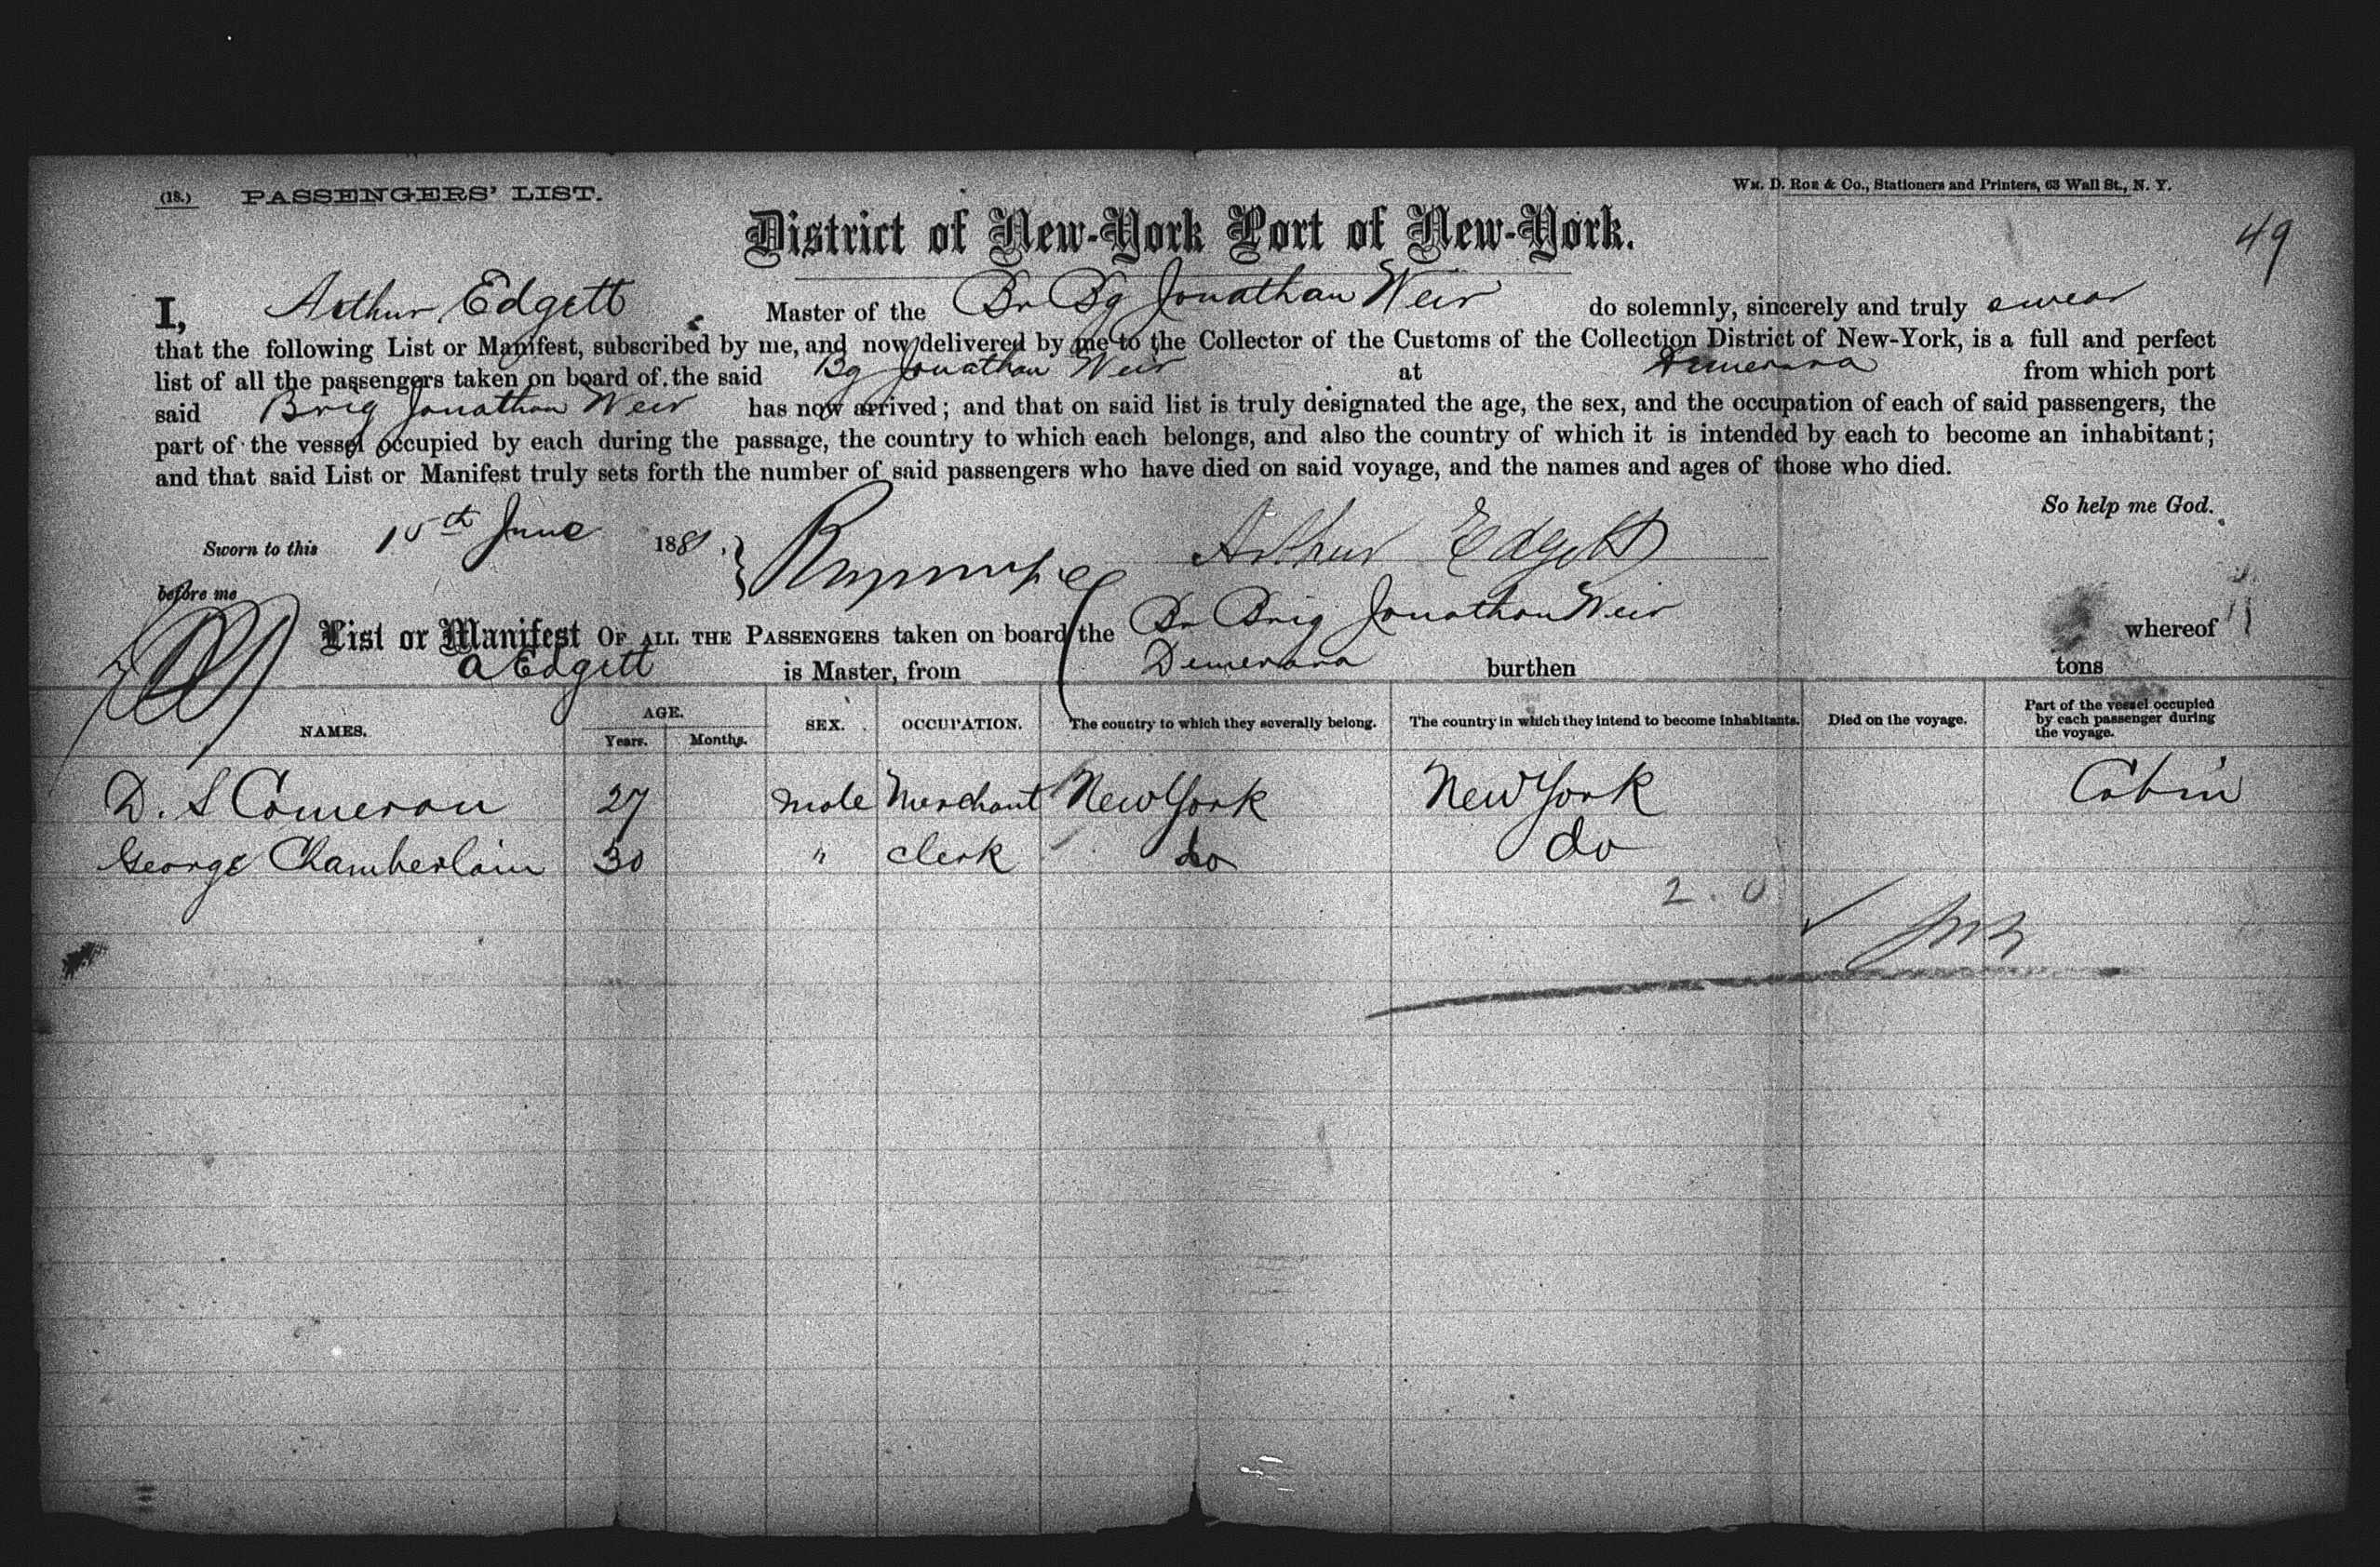 (18.) PASSENGERS' LIST.
WM. D. ROE & Co., Stationers and Printers, 63 Wall St., N. Y.
49
District of New-York Port of New-York.
I, Arthur Edgett Master of the Br Bg Jonathan Weir do solemnly, sincerely and truly swear
that the following List or Manifest, subscribed by me, and now delivered by me to the Collector of the Customs of the Collection District of New-York, is a full and perfect
list of all the passengers taken on board of the said Bg Jonathan Weir at Demerara from which port
said Brig Jonathan Weir has now arrived; and that on said list is truly designated the age, the sex, and the occupation of each of said passengers, the
part of the vessel occupied by each during the passage, the country to which each belongs, and also the country of which it is intended by each to become an inhabitant;
and that said List or Manifest truly sets forth the number of said passengers who have died on said voyage, and the names and ages of those who died.
So help me God.
Sworn to this 15th June 1881. Arthur Edgett
before me
List or Manifest OF ALL THE PASSENGERS taken on board the Br Brig Jonathan Weir whereof
A Edgett is Master, from Demerara burthen tons
NAMES. AGE. Years. Months. SEX. OCCUPATION. The country to which they severally belong. The country in which they intend to become inhabitants. Died on the voyage. Part of the vessel occupied by each passenger during the voyage.
D. S Cameron 27 male Merchant New York New York Cabin
George Chamberlain 30 " Clerk do do
2.0